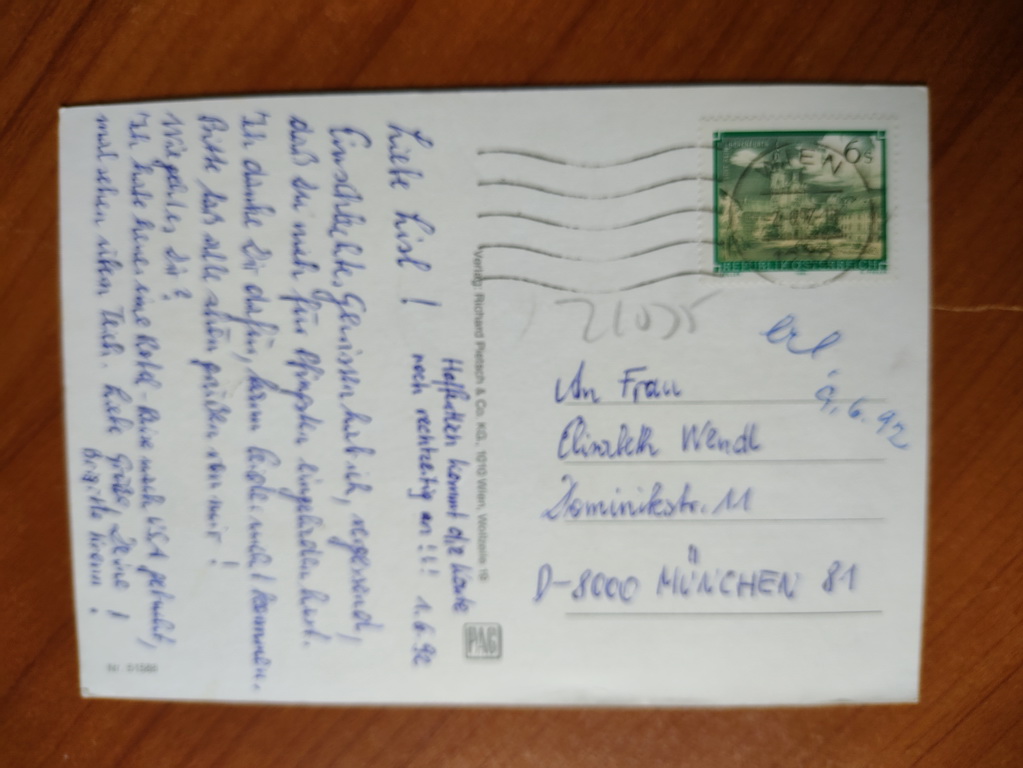 Hoffentlich kommt die Karte
noch rechtzeitig an!!! 1.6.92
Liebe Lisl!
Gewissen hab ich, 
daß Du mich für Pfingsten eingeladen hast.
Ich danke Dir dafür, kann leider nicht kommen.
Bitte laß alle schön grüßen von mir!
Wie geht es Dir?
Ich habe heuer eine Hotel-Reise nach USA gebucht,
mal sehen Liebe Grüße, Deine
Brigitte
Nr. 51586
Verlag: Richard Pietsch & Co. KG, 1010 Wien, Wollzeile 19
PAG
6 S
REPUBLIK ÖSTERREICH
21035
9.6.92
An Frau
Elisabeth Wendl
Dominikstr. 11
D-8000 MÜNCHEN 81